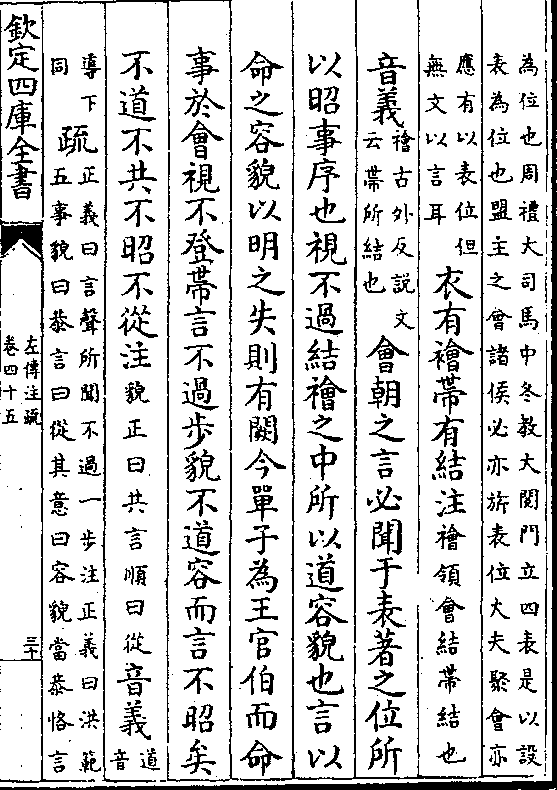 為位也周禮大司馬中冬教大閱門立四表是以設
表為位也盟主之會諸侯必亦旂表位大夫聚會亦
應有以表位但
無文以言耳
衣有襘帶有結注襘領會結帶結也
音義襘古外反説文
云帶所結也
會朝之言必聞于表著之位所
以昭事序也視不過結襘之中所以道容貌也言以
命之容貌以明之失則有闕今單子為王官伯而命
事於會視不登帶言不過步貌不道容而言不昭矣
不道不共不昭不從注貌正曰共言順曰從音義道音
導下
同
疏正義曰言聲所聞不過一步注正義曰洪範
五事貌曰恭言曰從其意曰容貌當恭恪言
欽定四庫全書
左傳注疏
卷四十五
三十